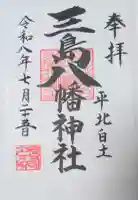 奉拝
平北白土
三島八幡神社
令和八年七月二十五日